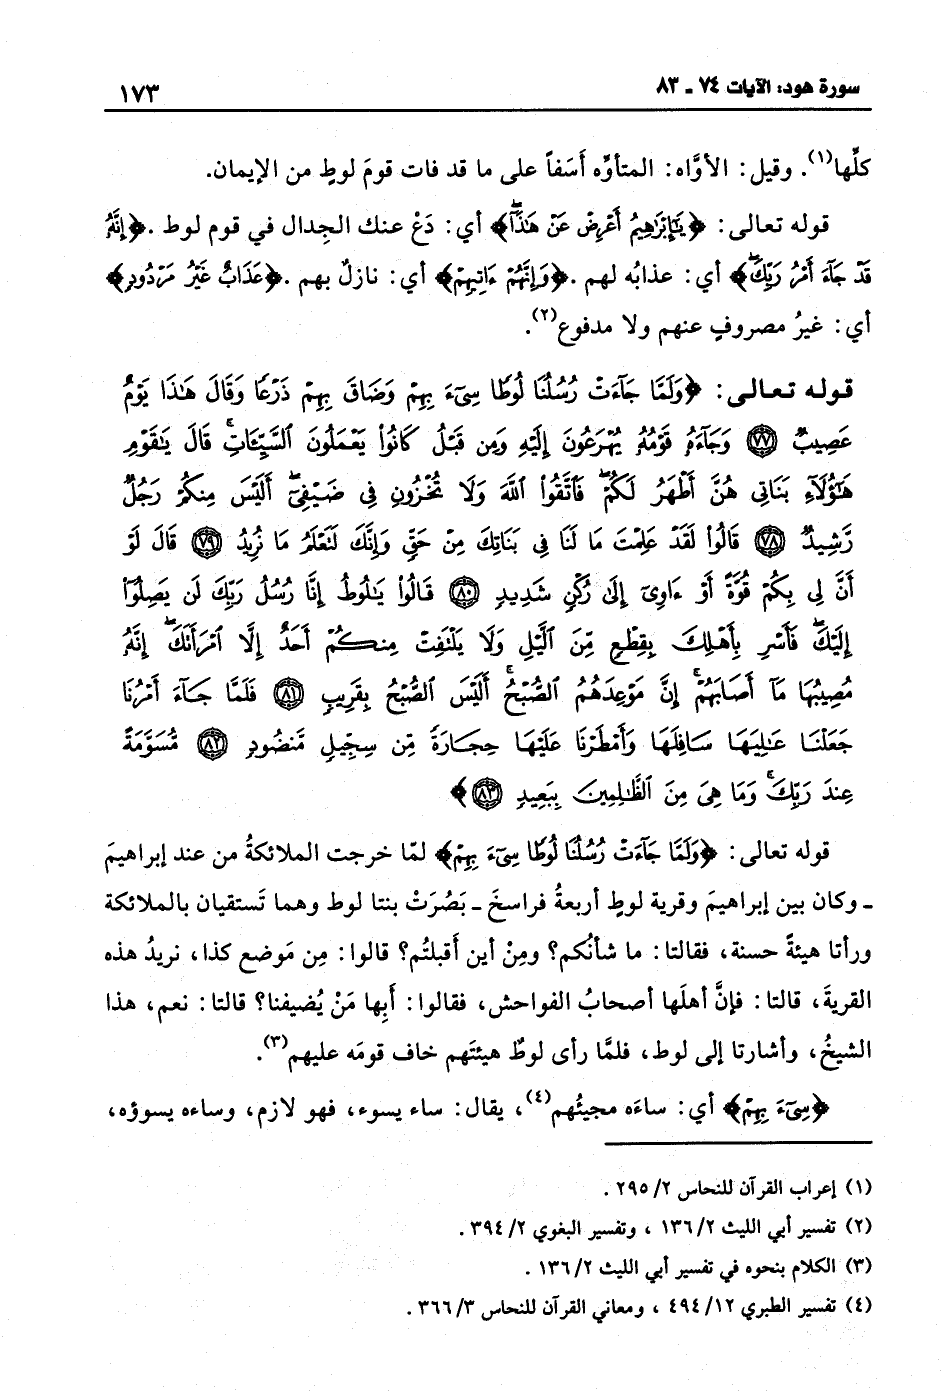 سورة هود: الآيات ٧٤ ـ ٨٣
١٧٣
كلِّها(١). وقيل: الأوَّاه: المتأوِّه أَسَفاً على ما قد فات قومَ لوطٍ من الإيمان.
قوله تعالى: ﴿يَٰٓإِبۡرَٰهِيمُ أَعۡرِضۡ عَنۡ هَٰذَآۖ﴾ أي: دَعْ عنك الجِدال في قوم لوط. ﴿إِنَّهُۥ
قَدۡ جَآءَ أَمۡرُ رَبِّكَۖ﴾ أي: عذابُه لهم. ﴿وَإِنَّهُمۡ ءَاتِيهِمۡ﴾ أي: نازلٌ بهم. ﴿عَذَابٌ غَيۡرُ مَرۡدُودٖ﴾
أي: غيرُ مصروفٍ عنهم ولا مدفوع(٢).
قوله تعالى: ﴿وَلَمَّا جَآءَتۡ رُسُلُنَا لُوطٗا سِيٓءَ بِهِمۡ وَضَاقَ بِهِمۡ ذَرۡعٗا وَقَالَ هَٰذَا يَوۡمٌ
عَصِيبٞ ٧٧ وَجَآءَهُۥ قَوۡمُهُۥ يُهۡرَعُونَ إِلَيۡهِ وَمِن قَبۡلُ كَانُواْ يَعۡمَلُونَ ٱلسَّيِّـَٔاتِۚ قَالَ يَٰقَوۡمِ
هَٰٓؤُلَآءِ بَنَاتِي هُنَّ أَطۡهَرُ لَكُمۡۖ فَٱتَّقُواْ ٱللَّهَ وَلَا تُخۡزُونِ فِي ضَيۡفِيٓۖ أَلَيۡسَ مِنكُمۡ رَجُلٞ
رَّشِيدٞ ٧٨ قَالُواْ لَقَدۡ عَلِمۡتَ مَا لَنَا فِي بَنَاتِكَ مِنۡ حَقّٖ وَإِنَّكَ لَتَعۡلَمُ مَا نُرِيدُ ٧٩ قَالَ لَوۡ
أَنَّ لِي بِكُمۡ قُوَّةً أَوۡ ءَاوِيٓ إِلَىٰ رُكۡنٖ شَدِيدٖ ٨٠ قَالُواْ يَٰلُوطُ إِنَّا رُسُلُ رَبِّكَ لَن يَصِلُوٓاْ
إِلَيۡكَۖ فَأَسۡرِ بِأَهۡلِكَ بِقِطۡعٖ مِّنَ ٱلَّيۡلِ وَلَا يَلۡتَفِتۡ مِنكُمۡ أَحَدٌ إِلَّا ٱمۡرَأَتَكَۖ إِنَّهُۥ
مُصِيبُهَا مَآ أَصَابَهُمۡۚ إِنَّ مَوۡعِدَهُمُ ٱلصُّبۡحُۚ أَلَيۡسَ ٱلصُّبۡحُ بِقَرِيبٖ ٨١ فَلَمَّا جَآءَ أَمۡرُنَا
جَعَلۡنَا عَٰلِيَهَا سَافِلَهَا وَأَمۡطَرۡنَا عَلَيۡهَا حِجَارَةٗ مِّن سِجِّيلٖ مَّنضُودٖ ٨٢ مُّسَوَّمَةً
عِندَ رَبِّكَۖ وَمَا هِيَ مِنَ ٱلظَّٰلِمِينَ بِبَعِيدٖ ٨٣﴾
قوله تعالى: ﴿وَلَمَّا جَآءَتۡ رُسُلُنَا لُوطٗا سِيٓءَ بِهِمۡ﴾ لمّا خرجت الملائكةُ من عند إبراهيمَ
ـ وكان بين إبراهيمَ وقرية لوطٍ أربعةُ فراسخَ ـ بَصُرَتْ بنتا لوط وهما تَستقيان بالملائكة
ورأتا هيئةً حسنة، فقالتا: ما شأنُكم؟ ومِنْ أين أَقبلتُم؟ قالوا: مِن مَوضع كذا، نريدُ هذه
القريةَ، قالتا: فإنَّ أهلَها أصحابُ الفواحش، فقالوا: أَبِها مَنْ يُضيفنا؟ قالتا: نعم، هذا
الشيخُ، وأشارتا إلى لوط، فلمَّا رأى لوطٌ هيئتَهم خاف قومَه عليهم(٣).
﴿سِيٓءَ بِهِمۡ﴾ أي: ساءَه مجيئُهم(٤)، يقال: ساء يسوء، فهو لازم، وساءه يسوؤه،
(١) إعراب القرآن للنحاس ٢/ ٢٩٥ .
(٢) تفسير أبي الليث ٢/ ١٣٦ ، وتفسير البغوي ٢/ ٣٩٤ .
(٣) الكلام بنحوه في تفسير أبي الليث ٢/ ١٣٦ .
(٤) تفسير الطبري ١٢/ ٤٩٤ ، ومعاني القرآن للنحاس ٣/ ٣٦٦ .